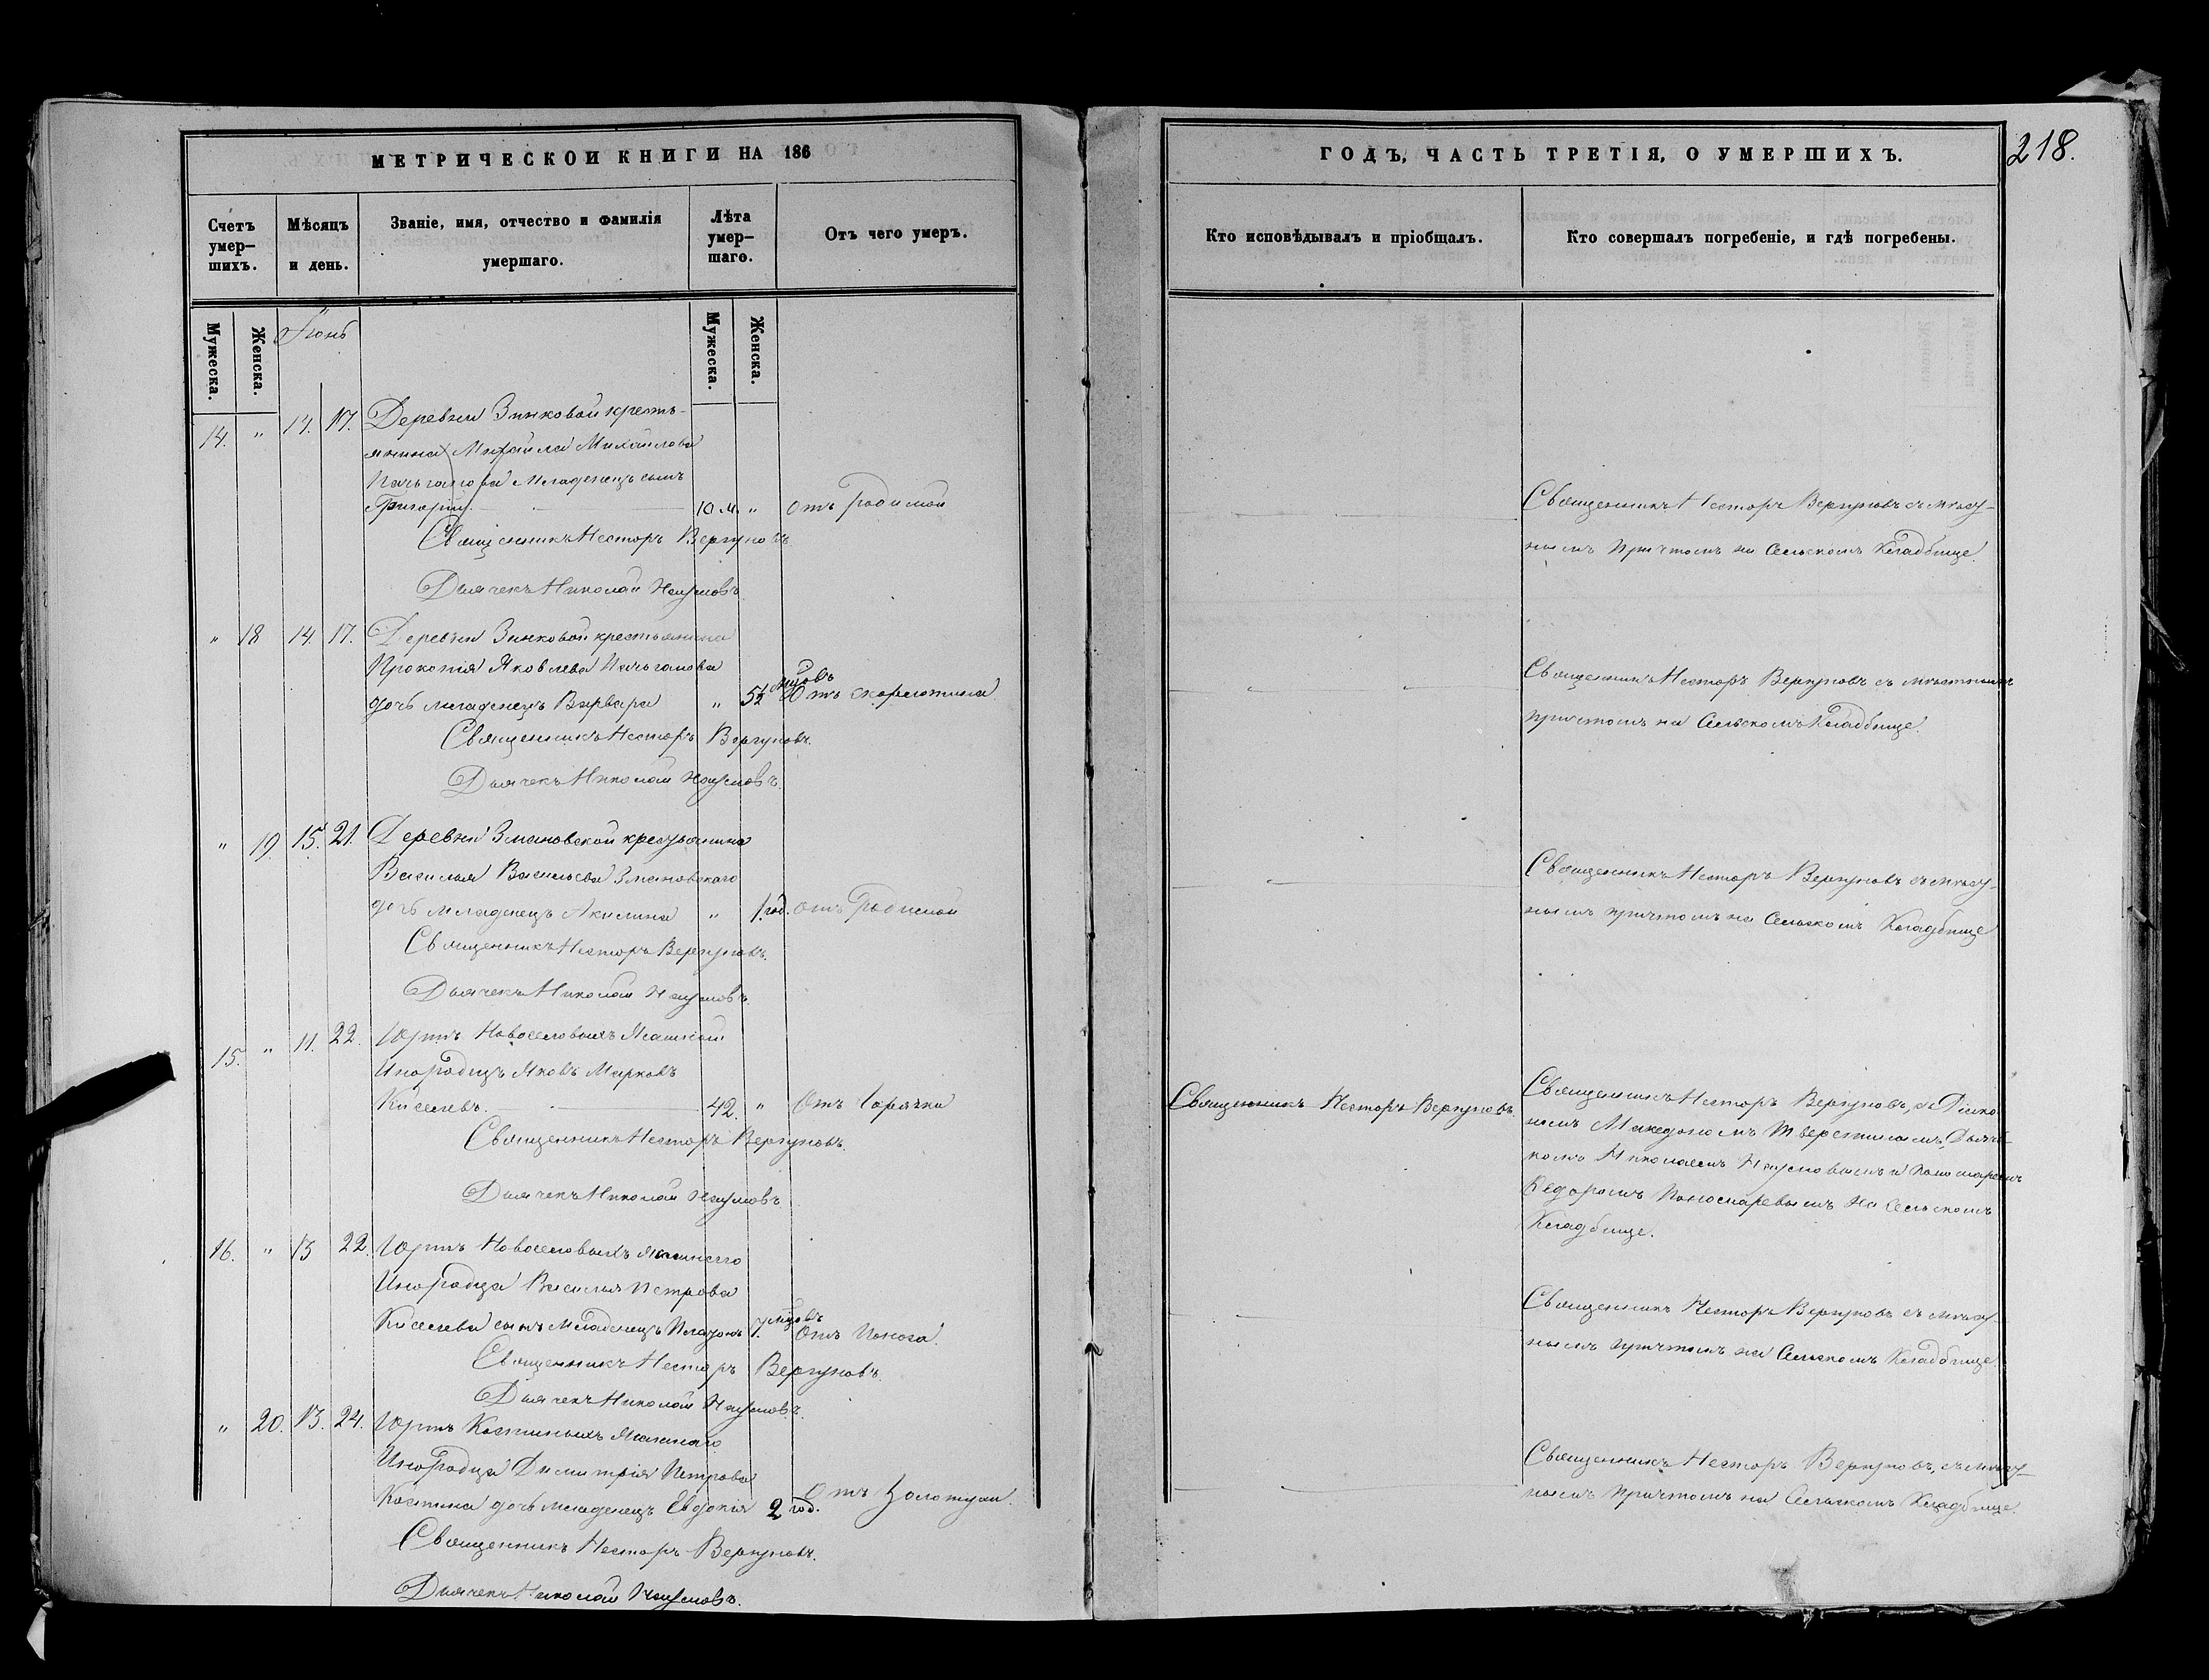 МЕТРИЧЕСКОЙ КНИГИ НА 186
Счетъ умер-шихъ.
Мѣсяцъ и день.
Званіе, имя, отчество и фамилія умершаго.
Лѣта умер-шаго.
Отъ чего умеръ.
Мужеска.
Женска.
Іюнь
Мужеска.
Женска.
14. " 14. 17. Деревни Зинковой кресть-
янина Михаила Михайлова
младенецъ сынъ
Григорій. 10 м. " отъ родимой
Священникъ Несторъ Вергуновъ
Дьячекъ Николай Наумовъ
" 18 14. 17. Деревни Зинковой крестьянина
Прокопія Яковлева
дочь младенецъ Варвара " 5½ мцовъ Отъ скарлотина
Священникъ Несторъ Вергуновъ.
Дьячекъ Николай Наумовъ.
" 19. 15. 21. Деревни Змановской крестьянина
Василья Васильева Змановскаго
дочь младенецъ Акилина " 1. год. отъ Родимой
Священникъ Несторъ Вергуновъ.
Дьячекъ Николай Наумовъ.
15. " 11. 22. Юртъ Новоселовыхъ Ясашный
Инородецъ Яковъ Марковъ
Киселевъ. 42. " Отъ Горячки
Священникъ Несторъ Вергуновъ.
Дьячекъ Николай Наумовъ
16. " 13 22. Юртъ Новоселовыхъ Ясашнаго
Инородца Василья Петрова
Киселева сынъ младенецъ Платонъ 7. мцовъ Отъ Поноса.
Священникъ Несторъ Вергуновъ.
Дьячекъ Николай Наумовъ.
" 20. 13. 24. Юртъ Костиныхъ Ясашнаго
Инородца Димитрія Петрова
Костина дочь младенецъ Евдокія 2 год. Отъ Золотухи.
Священникъ Несторъ Вергуновъ.
Дьячекъ Николай Наумовъ.
ГОДЪ, ЧАСТЬ ТРЕТІЯ, О УМЕРШИХЪ.
218.
Кто исповѣдывалъ и пріобщалъ.
Кто совершалъ погребеніе, и гдѣ погребены.
Священникъ Несторъ Вергуновъ съ мѣст-
нымъ причтомъ на Сельскомъ Кладбище.
Священникъ Несторъ Вергуновъ съ мѣстнымъ
причтомъ на Сельскомъ Кладбище.
Священникъ Несторъ Вергуновъ съ мѣст-
нымъ причтомъ на Сельскомъ Кладбище
Священникъ Несторъ Вергуновъ.
Священникъ Несторъ Вергуновъ, съ Діако-
номъ Македономъ Тверитинымъ, Дьяч-
комъ Николаемъ Наумовымъ и Пономаремъ
Ѳедоромъ Пономаревымъ на Сельскомъ
Кладбище.
Священникъ Несторъ Вергуновъ съ мѣст-
нымъ причтомъ на Сельскомъ Кладбище
Священникъ Несторъ Вергуновъ, съ мѣст-
нымъ причтомъ на Сельскомъ Кладбище.